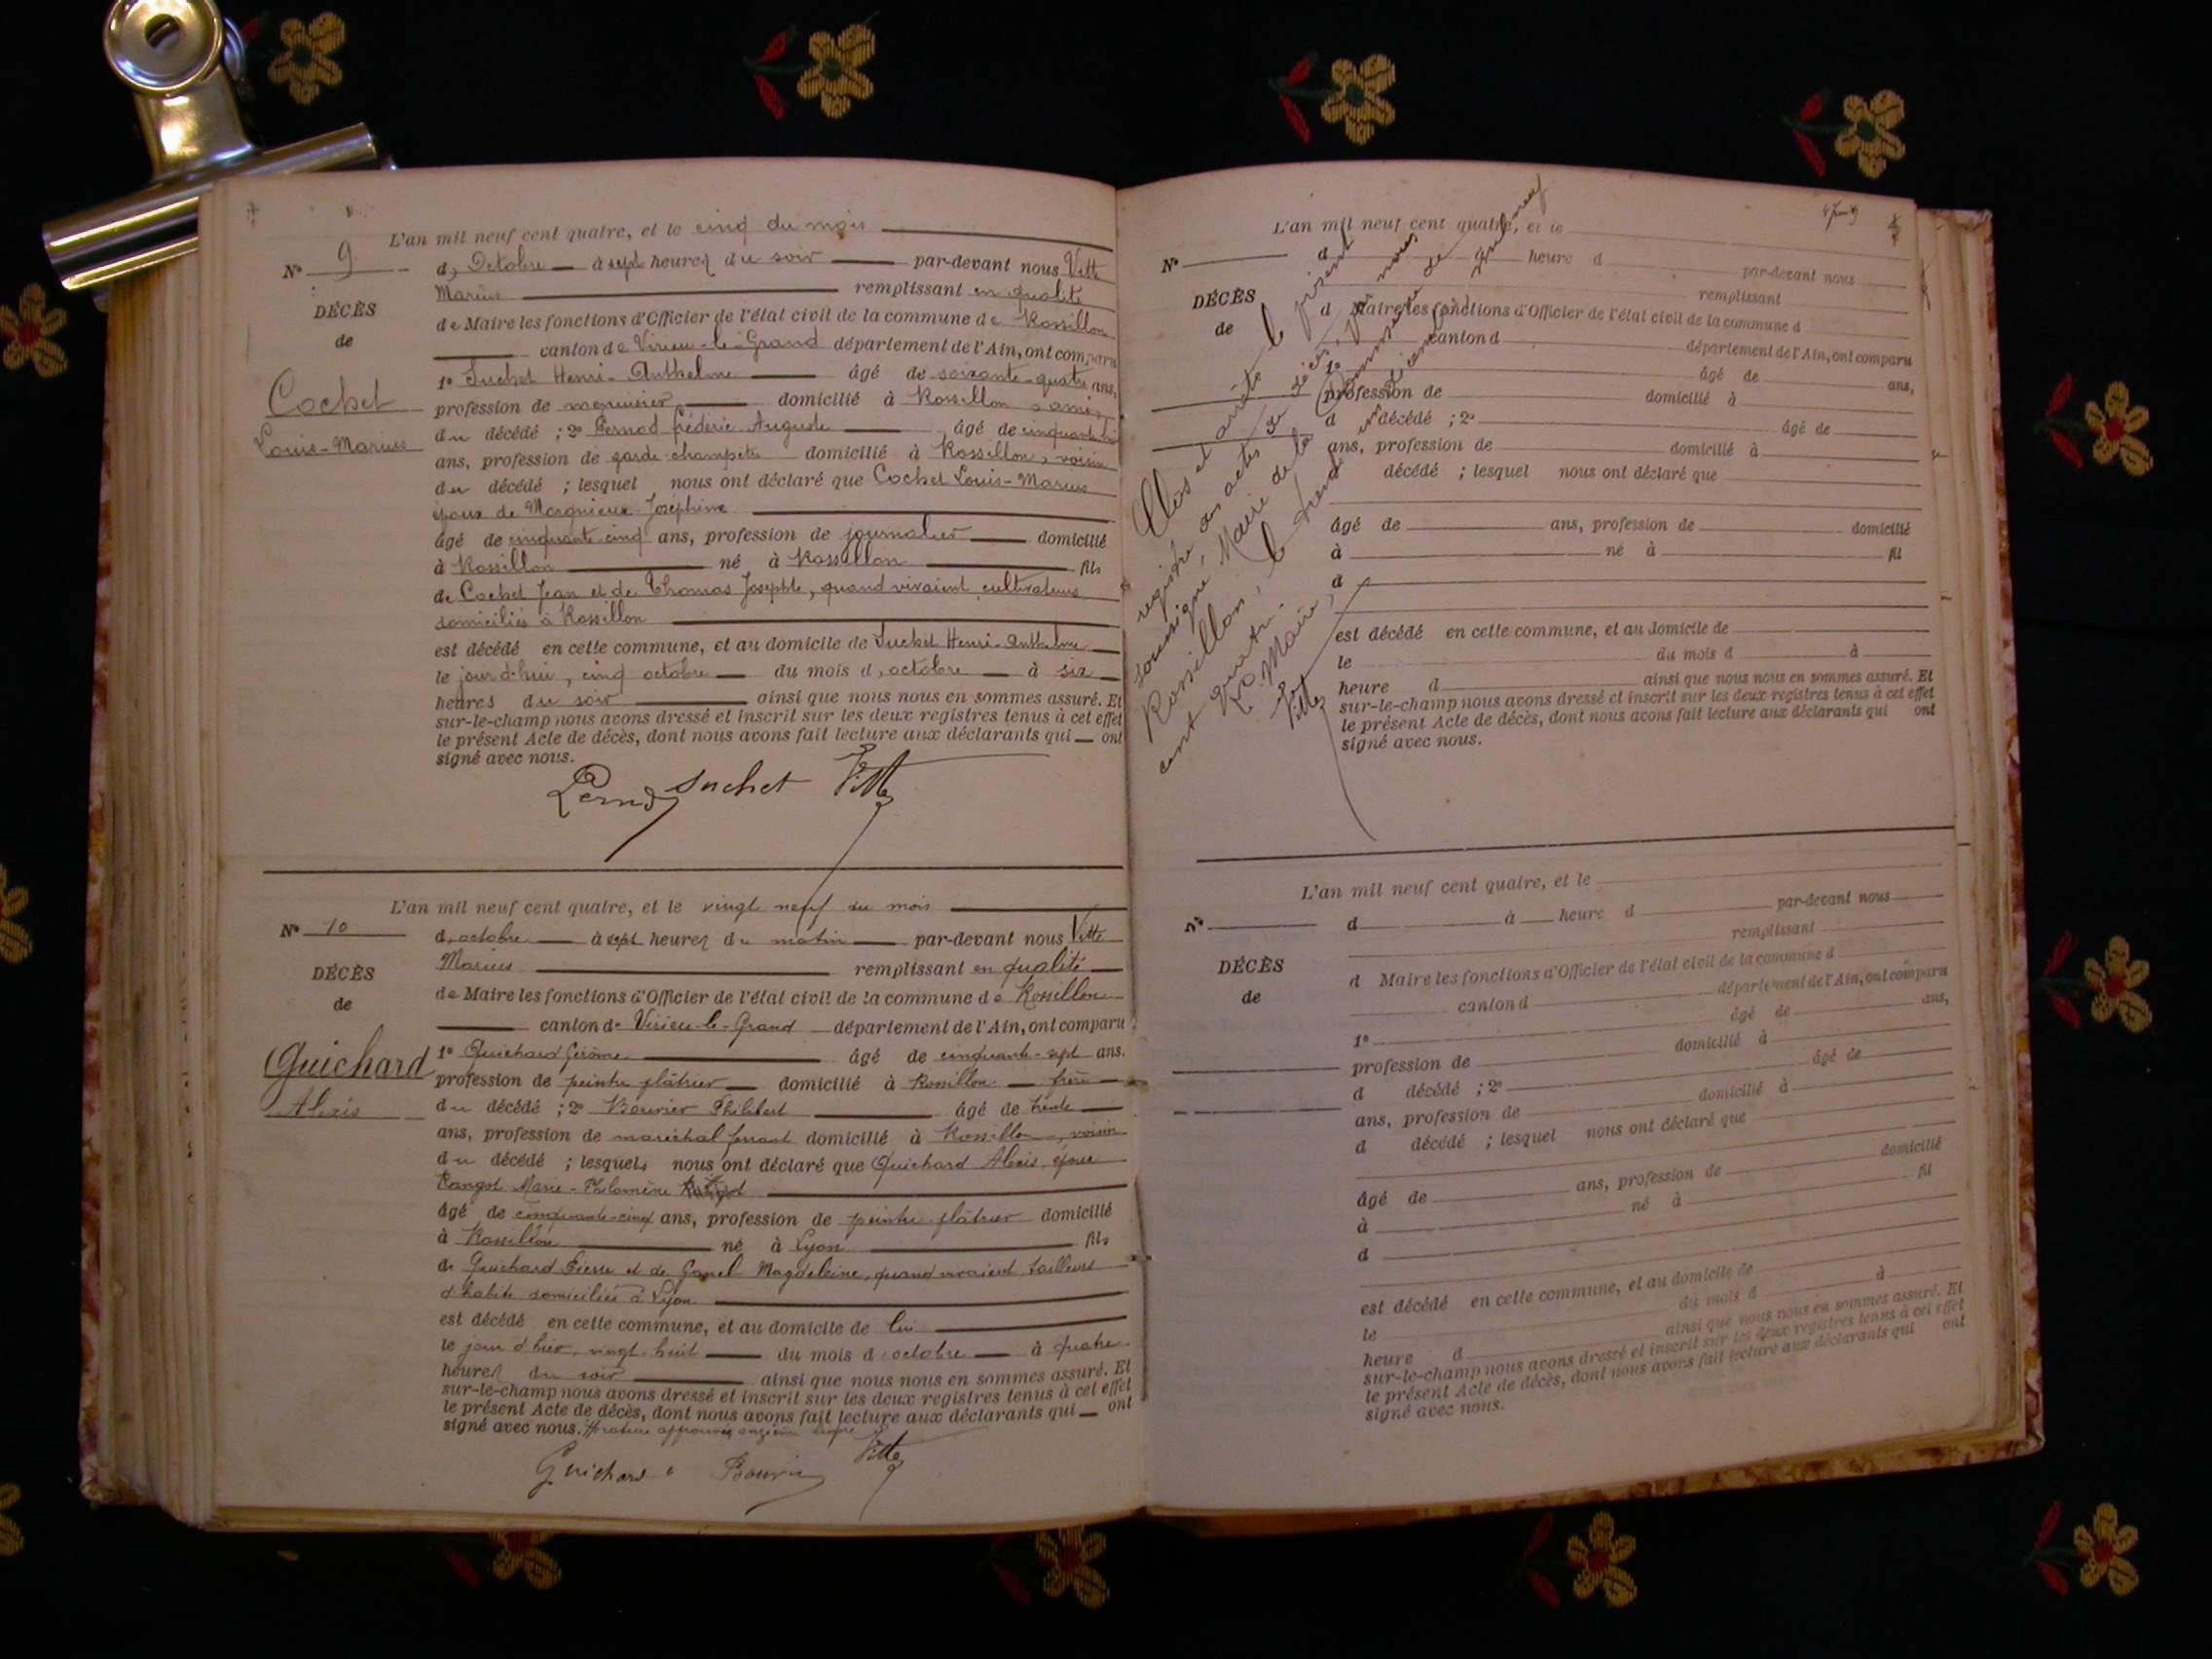 L'an mil neuf cent quatre, et le cinq du mois
N° 9
d'Octobre à sept heures du soir par-devant nous Vitte
Marius remplissant en qualité
DÉCÈS
de Maire les fonctions d'Officier de l'état civil de la commune de Rossillon
de
canton de Virieu-le-Grand département de l'Ain, ont comparu
1° Suchet Henri-Anthelme âgé de soixante-quatre ans,
Cochet
profession de menuisier domicilié à Rossillon, ami
Louis-Marius
du décédé ; 2° Pernod Frédéric Auguste âgé de cinquante
ans, profession de garde-champêtre domicilié à Rossillon, voisin
du décédé ; lesquel nous ont déclaré que Cochet Louis-Marius
époux de Margnieux Joséphine
âgé de cinquante cinq ans, profession de journalier domicilié
à Rossillon né à Rossillon fils
de Cochet Jean et de Thomas Josephte, quand vivaient cultivateurs
domiciliés à Rossillon
est décédé en cette commune, et au domicile de Suchet Henri-Anthelme
le jour d'hui, cinq octobre du mois d'octobre à six
heures du soir ainsi que nous nous en sommes assuré. Et
sur-le-champ nous avons dressé et inscrit sur les deux registres tenus à cet effet
le présent Acte de décès, dont nous avons fait lecture aux déclarants qui ont
signé avec nous.
Pernod Suchet Vitte
L'an mil neuf cent quatre, et le vingt neuf du mois
N° 10
d'octobre à sept heures du matin par-devant nous Vitte
Marius remplissant en qualité
DÉCÈS
de Maire les fonctions d'Officier de l'état civil de la commune de Rossillon
de
canton de Virieu-le-Grand département de l'Ain, ont comparu
Guichard
1° Guichard Gérôme âgé de cinquante-sept ans.
profession de peintre plâtrier domicilié à Rossillon frère
Alexis
du décédé ; 2° Bouvier Philibert âgé de trente
ans, profession de maréchal ferrant domicilié à Rossillon, voisin
du décédé ; lesquels nous ont déclaré que Guichard Alexis, époux
Rangot Marie-Philomène
âgé de cinquante-cinq ans, profession de peintre plâtrier domicilié
à Rossillon né à Lyon fils
de Guichard Pierre et de Magdeleine, quand vivaient tailleurs
d'habits domiciliés à Lyon
est décédé en cette commune, et au domicile de lui
le jour d'hier, vingt-huit du mois d'octobre à quatre
heures du soir ainsi que nous nous en sommes assuré. Et
sur-le-champ nous avons dressé et inscrit sur les deux registres tenus à cet effet
le présent Acte de décès, dont nous avons fait lecture aux déclarants qui ont
signé avec nous. rature approuvée onzième ligne
Guichard Bouvier Vitte
L'an mil neuf cent quatre, et le
N°
d à heure d par-devant nous
remplissant
DÉCÈS
d Maire les fonctions d'Officier de l'état civil de la commune d
de
canton d département de l'Ain, ont comparu
âgé de ans,
profession de domicilié à
d décédé ; 2° âgé de
ans, profession de domicilié à
d décédé ; lesquel nous ont déclaré que
âgé de ans, profession de domicilié
à né à fil
d
est décédé en cette commune, et au domicile de
le du mois d à
heure d ainsi que nous nous en sommes assuré. Et
sur-le-champ nous avons dressé et inscrit sur les deux registres tenus à cet effet
le présent Acte de décès, dont nous avons fait lecture aux déclarants qui ont
signé avec nous.
Clos et arrêté le présent
registre, aux actes de décès, par nous
soussigné Maire de la Commune de
Rossillon, le trente un décembre mil neuf
cent quatre.
Le Maire,
Vitte
L'an mil neuf cent quatre, et le
N°
d à heure d par-devant nous
remplissant
DÉCÈS
d Maire les fonctions d'Officier de l'état civil de la commune d
de
canton d département de l'Ain, ont comparu
1° âgé de ans,
profession de domicilié à
d décédé ; 2° âgé de
ans, profession de domicilié à
d décédé ; lesquel nous ont déclaré que
âgé de ans, profession de domicilié
à né à fil
d
est décédé en cette commune, et au domicile de
le du mois d à
heure d ainsi que nous nous en sommes assuré. Et
sur-le-champ nous avons dressé et inscrit sur les deux registres tenus à cet effet
le présent Acte de décès, dont nous avons fait lecture aux déclarants qui ont
signé avec nous.